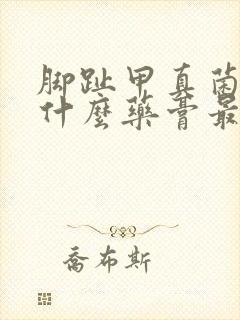 脚趾甲真菌
什麼藥膏最
喬布斯